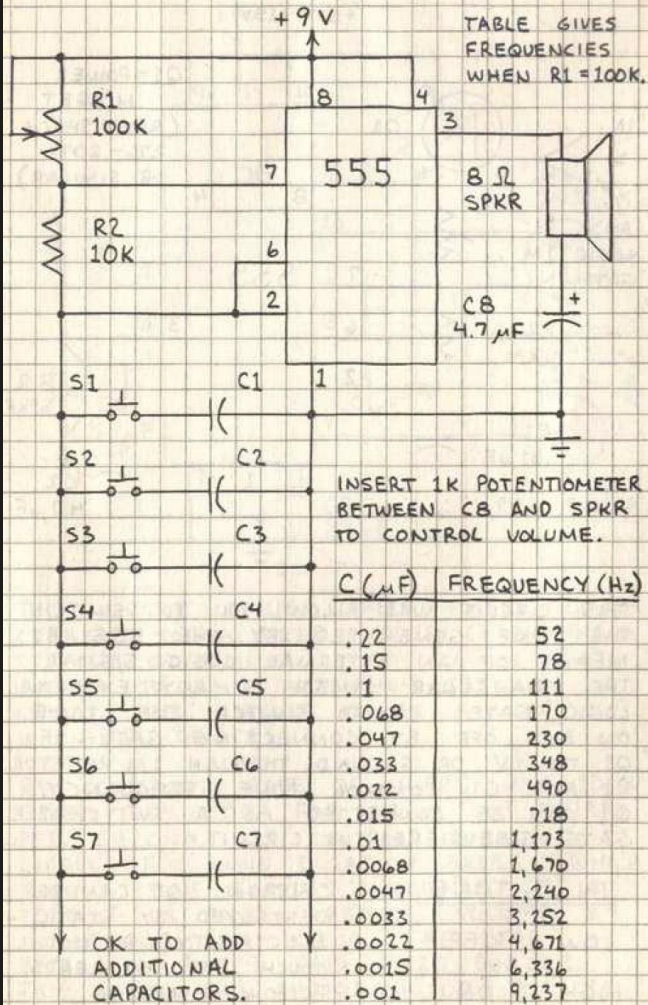 +9V
TABLE GIVES
FREQUENCIES
WHEN R1 = 100K.
R1
100K
8
4
3
7
555
8 Ω
SPKR
R2
10K
6
2
C8
4.7 µF
+
1
S1
C1
S2
C2
INSERT 1K POTENTIOMETER
BETWEEN C8 AND SPKR
TO CONTROL VOLUME.
S3
C3
S4
C4
S5
C5
S6
C6
S7
C7
C (µF) FREQUENCY (Hz)
.22 52
.15 78
.1 111
.068 170
.047 230
.033 348
.022 490
.015 718
.01 1,173
.0068 1,670
.0047 2,240
.0033 3,252
.0022 4,671
.0015 6,336
.001 9,237
OK TO ADD
ADDITIONAL
CAPACITORS.